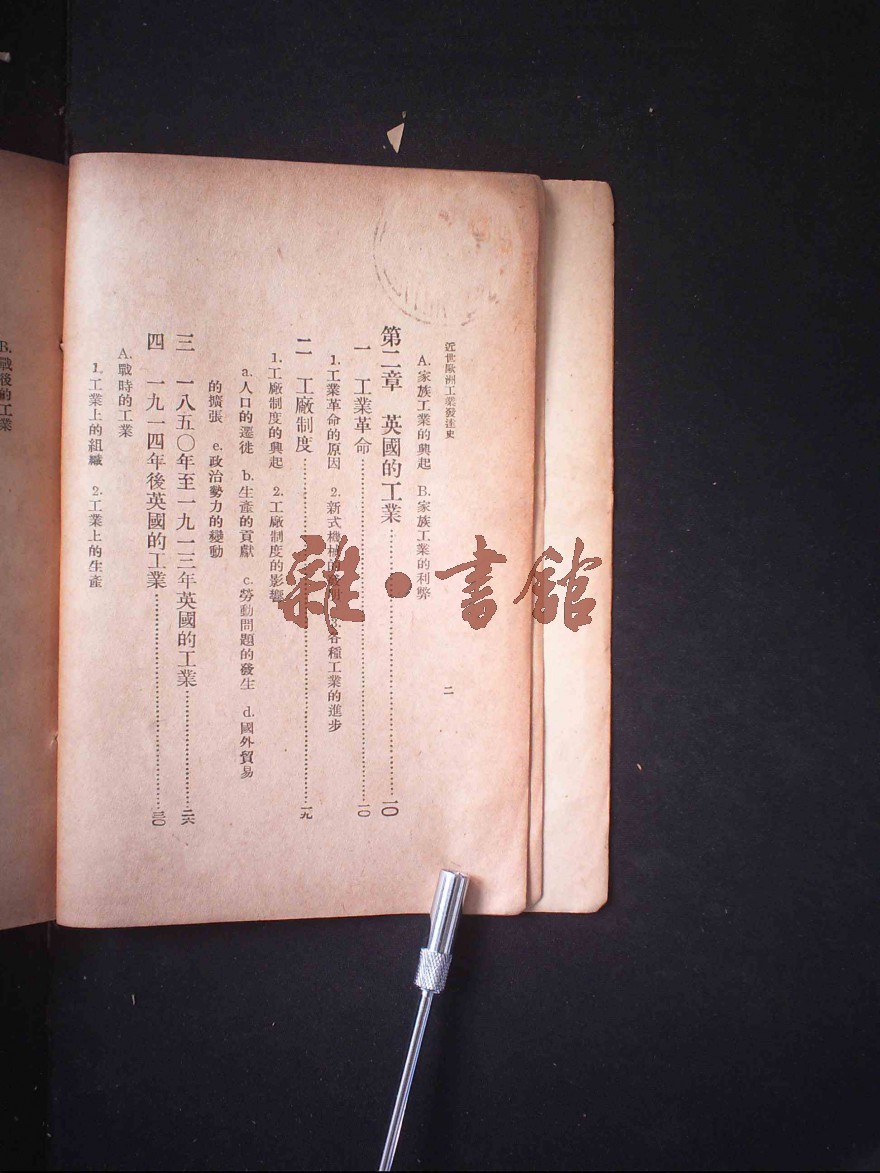 近世歐洲工業發達史
二
A.家族工業的興起 B.家族工業的利弊
第二章 英國的工業…………一〇
一 工業革命…………一〇
1.工業革命的原因 2.新式機械的 各種工業的進步
二 工廠制度…………一九
1.工廠制度的興起 2.工廠制度的影響
a.人口的遷徙 b.生產的貢獻 c.勞動問題的發生 d.國外貿易
的擴張 e.政治勢力的變動
三 一八五〇年至一九一三年英國的工業…………二六
四 一九一四年後英國的工業…………三〇
A.戰時的工業
1.工業上的組織 2.工業上的生產
B.戰後的工業
雜·書館